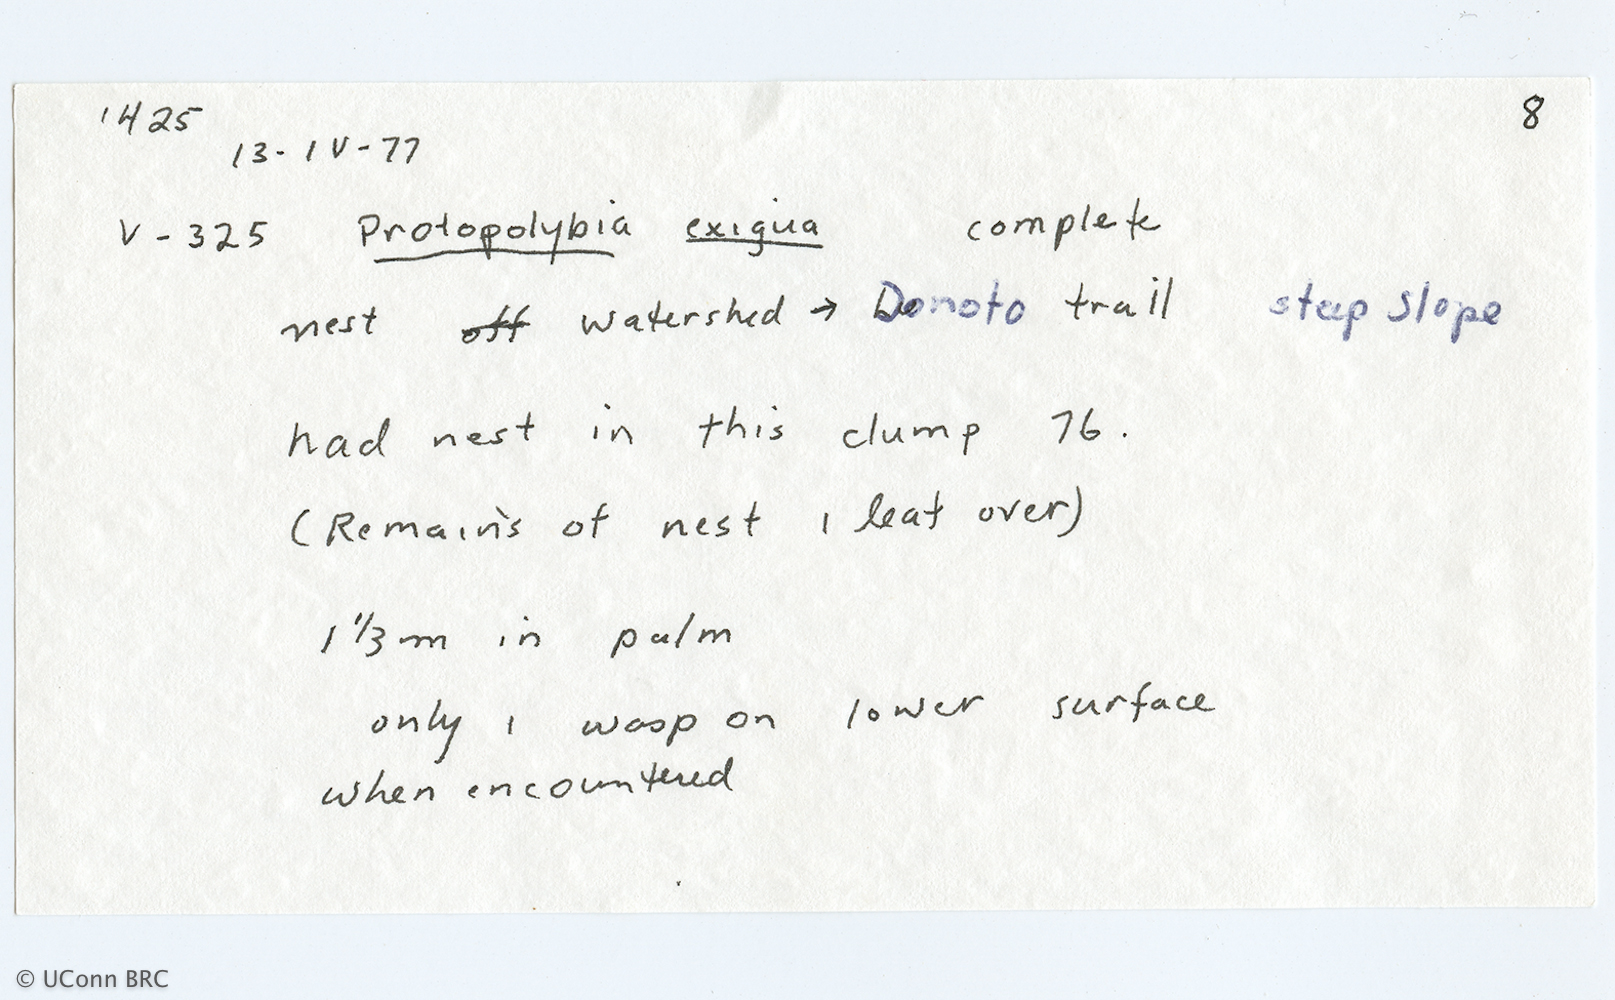 1425
8
13-IV-77
V-325 Protopolybia exigua complete
nest off watershed → Donoto trail steep slope
had nest in this clump 76.
(Remains of nest 1 leaf over)
1 1/3 m in palm
only 1 wasp on lower surface
when encountered
© UConn BRC